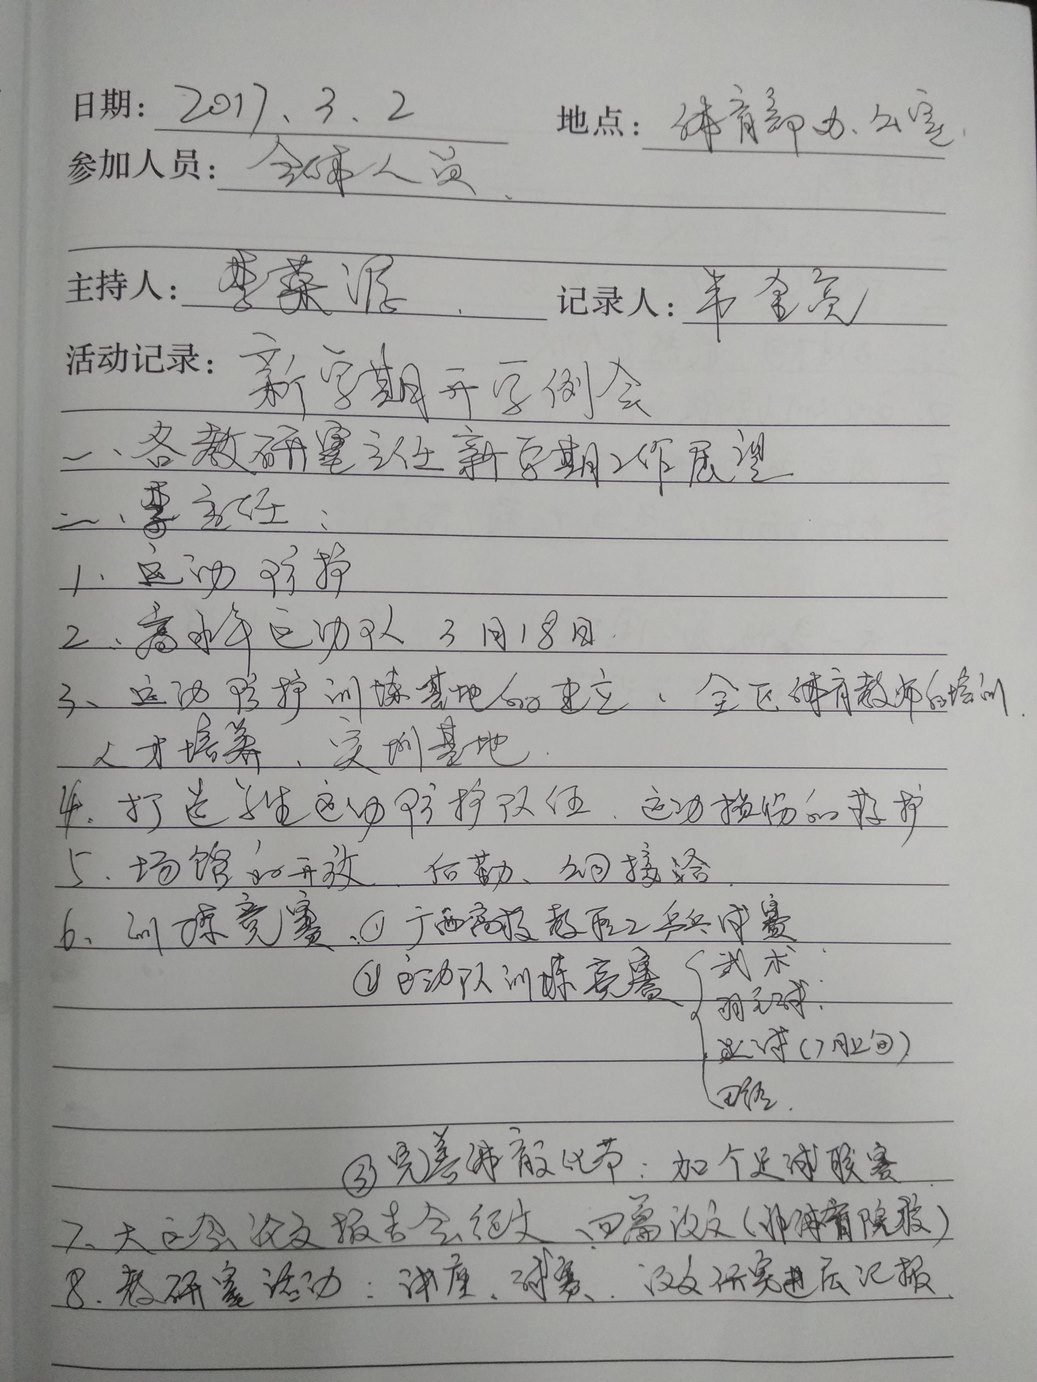 日期：2017.3.2 地点：体育部办公室
参加人员：全体人员
主持人：李荣源 记录人：韦金亮
活动记录：新学期开学例会
一、各教研室主任新学期工作展望
二、李主任：
1、运动防护
2、高水平运动队 3月18日
3、运动防护训练基地的建立、全区体育教师的培训
人才培养、实训基地
4、打造学生运动防护队伍、运动损伤的救护
5、场馆的开放、后勤、公司接洽
6、训练竞赛、①广西高校教职工乒乓球赛
②运动队训练竞赛 武术
羽毛球
足球(7月上旬)
田径
③完善体育文化节：加个足球联赛
7、大运会论文报告会征文、四篇论文(非体育院校)
8、教研室活动：讲座、球赛、论文研究进展汇报